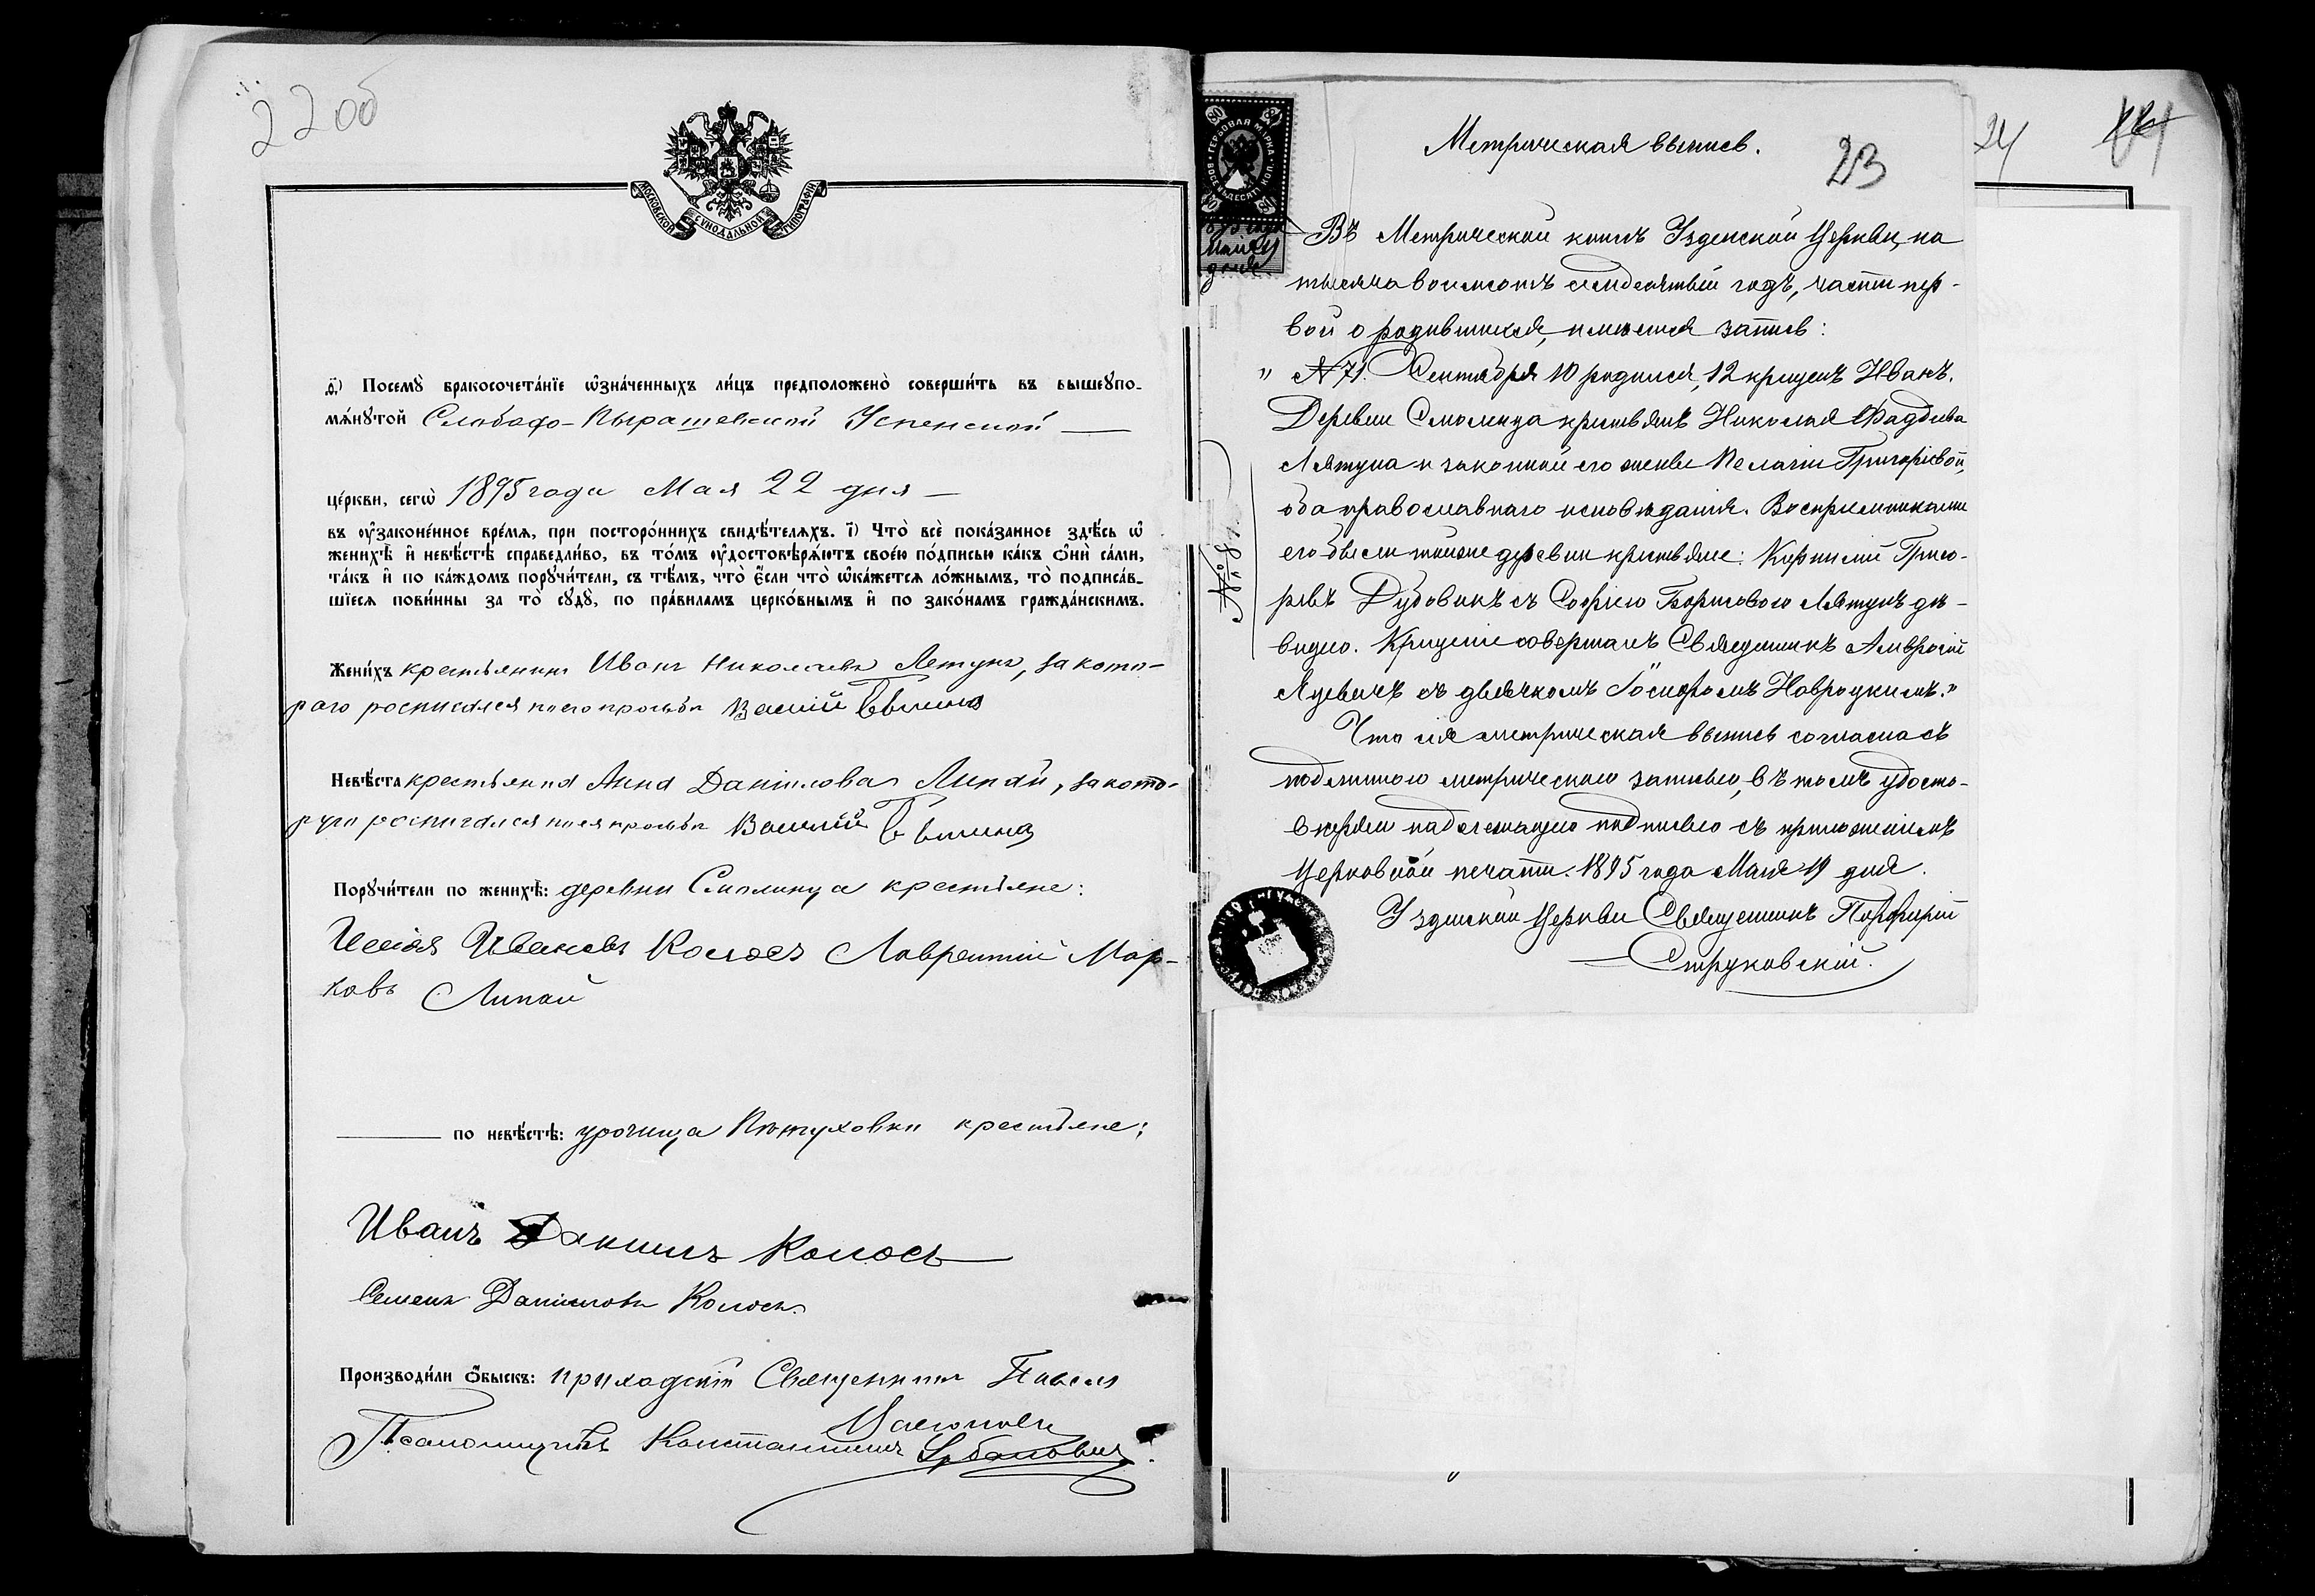 22об
МОСКОВСКОЙ СѴНОДАЛЬНОЙ ТИПОГРАФІИ
д҃) Посемꙋ̀ бракосочета́нїе ѡ҆зна́ченныхъ ли́цъ предположено̀ соверши́ть въ вышеꙋпо-
мѧ́нꙋтой Слободо-Пырашевской Успенской —
це́ркви, сегѡ̀ 1895 года Мая 22 дня —
въ ᲂу҆зако́ненное вре́мѧ, при посторо́ннихъ свидѣ́телѧхъ. і҃) Что̀ всѐ пока́занное здѣ́сь ѡ҆
женихѣ̀ и҆ невѣ́стѣ справедли́во, въ то́мъ ᲂу҆достовѣрѧ́ютъ свое́ю по́дписью ка́къ ѻ҆нѝ са́ми,
та́къ и҆ по ка́ждомъ порꙋчи́тели, съ тѣ́мъ, что̀ є҆́сли что̀ ѡ҆ка́жетсѧ ло́жнымъ, то̀ подписа́в-
шїесѧ пови́нны за то̀ сꙋдꙋ̀, по пра́виламъ церко́внымъ и҆ по зако́намъ гражда́нскимъ.
Жени́хъ крестьянинъ Иванъ Николаевъ Летунъ, за кото-
раго росписался по его просьбѣ
Невѣ́ста крестьянка Анна Даниилова Липай, за кото-
рую росписался по ея просьбѣ
Порꙋчи́тели по женихѣ̀: деревни Смолинца крестьяне:
Ивановъ Колосъ Лаврентій Мар-
ковъ Липай
по невѣ́стѣ: урочища Пѣтуховки крестьяне:
Иванъ Колосъ
Семенъ Данииловъ Колосъ.
Производи́ли ѻ҆́быскъ: приходскій Священникъ Павелъ
Псаломщикъ Константинъ Урбановичъ.
ГЕРБОВАЯ МАРКА
ВОСЕМЬДЕСЯТЪ КОП.
80
1895 года
Мая 19
дня
Метрическая выпись.
23
24
№ 81.
Въ Метрической книгѣ Узденской Церкви, на
тысяча восемсотъ семдесятый годъ, части пер-
вой о родившихся, имѣется запись:
„ № 71. Сентября 10 родился, 12 крещенъ Иванъ.
Деревни Смолинца крестьянъ Николая Фадѣева
Лятуна и законной его жены Пелагіи Григорьевой,
оба православнаго исповѣданія. Воспріемниками
его были тойже деревни крестьяне: Корнилій Григо-
рьевъ Дубовикъ съ Софіею Борисовою Лятунъ дѣ-
вицею. Крещеніе совершалъ Священникъ Амвросій
Яцевичъ съ дьячкомъ Іосифомъ Новроцкимъ."
Что сія метрическая выпись согласна съ
подлинною метрическою записью, въ томъ удосто-
вѣряю надлежащею подписью съ приложеніемъ
Церковной печати. 1895 года Мая 19 дня.
Узденской Церкви Священникъ Порфирій
Струковскій.